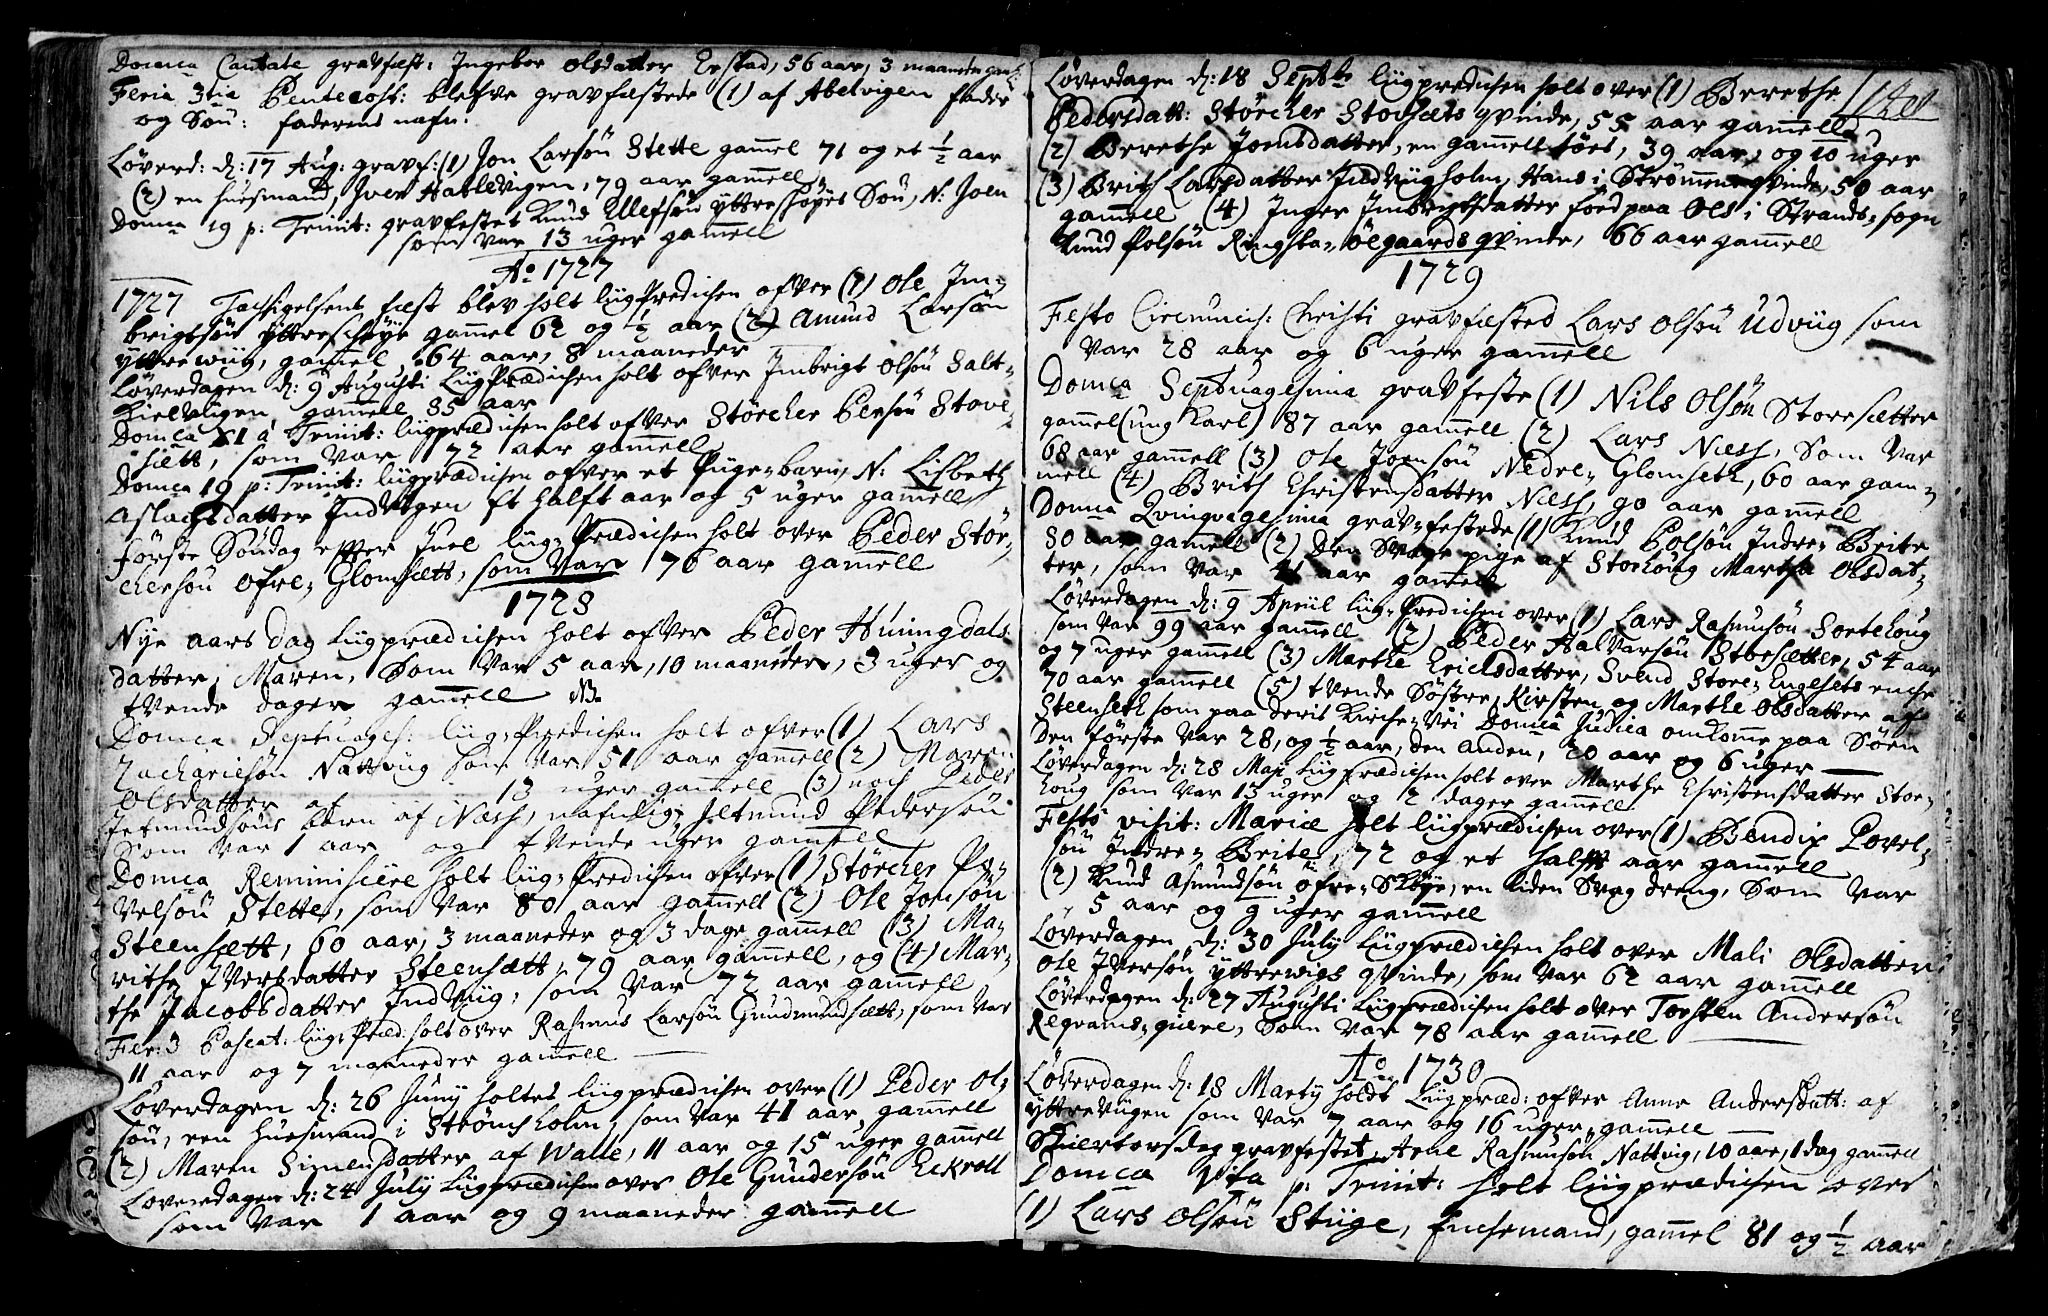 Domca Cantate gravfæst: Ingebor Olsdatter Erstad, 56 aar, 3 maaneder gaml:
Feria 3tia Pentecost: blefve gravfæstede (1) af Abelvigen fader
og Søn: faderens nafn:
Løverd: d: 17 Aug: gravf: (1) Jon Larsøn Stette gamel 71 og et ½ aar
(2) en huusmand, Iver Hablevigen, 79 aar gamell
Domca 19 p: Trinit: gravfestet Knud Ellefsøn yttre Høyes Søn, N: Joen
som var 13 uger gamell
Ao 1727
1727 Tacsigelsens fæst blev holt liigPredichen ofver (1) Ole Im-
brigtsøn yttre Skøye gamel 62 og ½ aar (2) Amund Larsøn
yttrewiig, gamel 64 aar, 8 maaneder
Løverdagen d: 9 Augusti LiigPrædichen holt ofver Imbrigt Olsøn Salt-
Kieldvigen gamell 85 aar
Domca XI á Trinit: liigprædichen holt ofver Størcher Persøn Stove-
sætt, som var 72 aar gamell
Domca 19 p: Trinit: liigprædichen ofver et Pigebarn, N: Lisbeth
Aslachsdatter Indvigen Et halft aar og 5 uger gamell
første Søndag efter Juel liig-Prædichen holt over Peder Stør-
chersøn ofre- Glomsætt, som var 76 aar gamell
1728
Nye aars Dag Liigprædichen holt ofver Peder Huningdals
datter, Maren, som var 5 aar, 10 maaneder, 3 uger og
tvende dager gamell NB.
Domca Septuages: liig-Predichen holt ofver (1) Lars
Zachariesøn Nattvig som var 51 aar gamell (2) Mare
Olsdatter af 13 uger gamell (3) noch Peder
Jetmundsøns barn af Næss, nafnlig- Jetmund Pedersøn
som var 1 aar og tvende uger gamell
Domca Reminiscere holt liig-Predichen ofver (1) Størcher Po-
velsøn Stette, som var 80 aar gamell (2) Ole Joensøn
Steensætt, 60 aar, 3 maaneder og 3 dage gamell (3) Ma-
rithe Iversdatter Steensætt, 79 aar gamell, og (4) Mar-
the Jacobsdatter Indviig, som var 72 aar gamell
Fer: 3 Pascat: liig-Præd: holt over Rasmus Larsøn Gundmundsætt, som var
11 aar og 7 maaneder gamell
Løverdagen d: 26 Juny holtes liigprædichen over (1) Peder Ol-
søn, een huusmand i Strømsholm, som var 41 aar gamell
(2) Maren Simensdatter af Walle, 11 aar og 15 uger gamell
Løverdagen d: 24 July Liigprædichen over Ole Gundersøn Eckroll
som var 1 aar og 9 maaneder gamell
Løverdagen d: 18 Septbr liigprædichen holt over (1) Berethe
Pedersdatt: Størcher Stovsæts qvinde, 55 aar gamell
(2) Berethe Joensdatter, en gamell Tøes, 39 aar, og 10 uger
(3) Brith Larsdatter Indviigholm, Hans i Strømmen qvinde, 50 aar
gamell (4) Inger Imbrigtsdatter fød paa Ols i Strands-sogn
Knud Polsøn Ringsta- ølgaards qvinde, 66 aar gamell
1729
Festo Circumcis: Christi gravfæsted Lars Olsøn Udviig som
var 28 aar og 6 uger gamell
Domca Septuagesima gravfeste (1) Nils Olsøn Storesætter
gammel (ung Karl) 87 aar gamell (2) Lars Næss, som var
68 aar gamell (3) Ole Joensøn Nedre- Glomseth, 60 aar gam-
mell (4) Brith Christensdatter Næss, 90 aar gamell
Domca Qvinqvagesima grav-festede (1) Knud Polsøn Indre- Brite
80 aar gamell (2) Den Svage pige af Storhoug Martha Olsdat-
ter, som var 41 aar gamell
Løverdagen d: 9 Apriil liig-Predichen over (1) Lars Rasmusøn Sortehoug
som var 99 aar gamell (2) Peder Halvarsøn Storsætter, 54 aar
og 7 uger gamell (3) Marthe Erichsdatter, Svend Store- Engesets enche
70 aar gamell (5) tvende Søstre, Kirsten og Marthe Olsdatter af
Steenseth som paa deris Kirche-Vei Domca Judica omkomme paa Søen
Den første var 28, og ½ aar, den anden, 20 aar og 6 uger
Løverdagen d: 28 Maji Liigprædichen holt over Marthe Christensdatter Stor-
houg som var 13 uger og 2 dager gamell
Festo visit: Mariæ holt liigprædichen over (1) Bendix Povel-
søn Indre- Brite, 72 og et halft aar gamell
(2) Knud Asmundsøn ofre- Skøye, en liden Svag dreng, som var
5 aar og 9 uger gamell
Løverdagen d: 30 July Liigprædichen holt over Mali Olsdatter
Ole Iversøn yttrewigs qvinde, som var 62 aar gamell
Løverdagen d: 27 Augusti Liigprædichen holt over Torsten Andersøn
som var 78 aar gamell
Ao 1730
Løverdagen d: 18 Marty holdt Liigpræd: ofver Anne Andersdatt: af
yttreviigen som var 7 aar og 16 uger gamell
Skiertorsdag gravfestet, Arne Rasmusøn Nattvig, 10 aar, 1 dag gamell
Domca VIta p: Trinit: holt liigprædichen over
(1) Lars Olsøn Stiige, Enchemand, gamel 81 og ½ aar